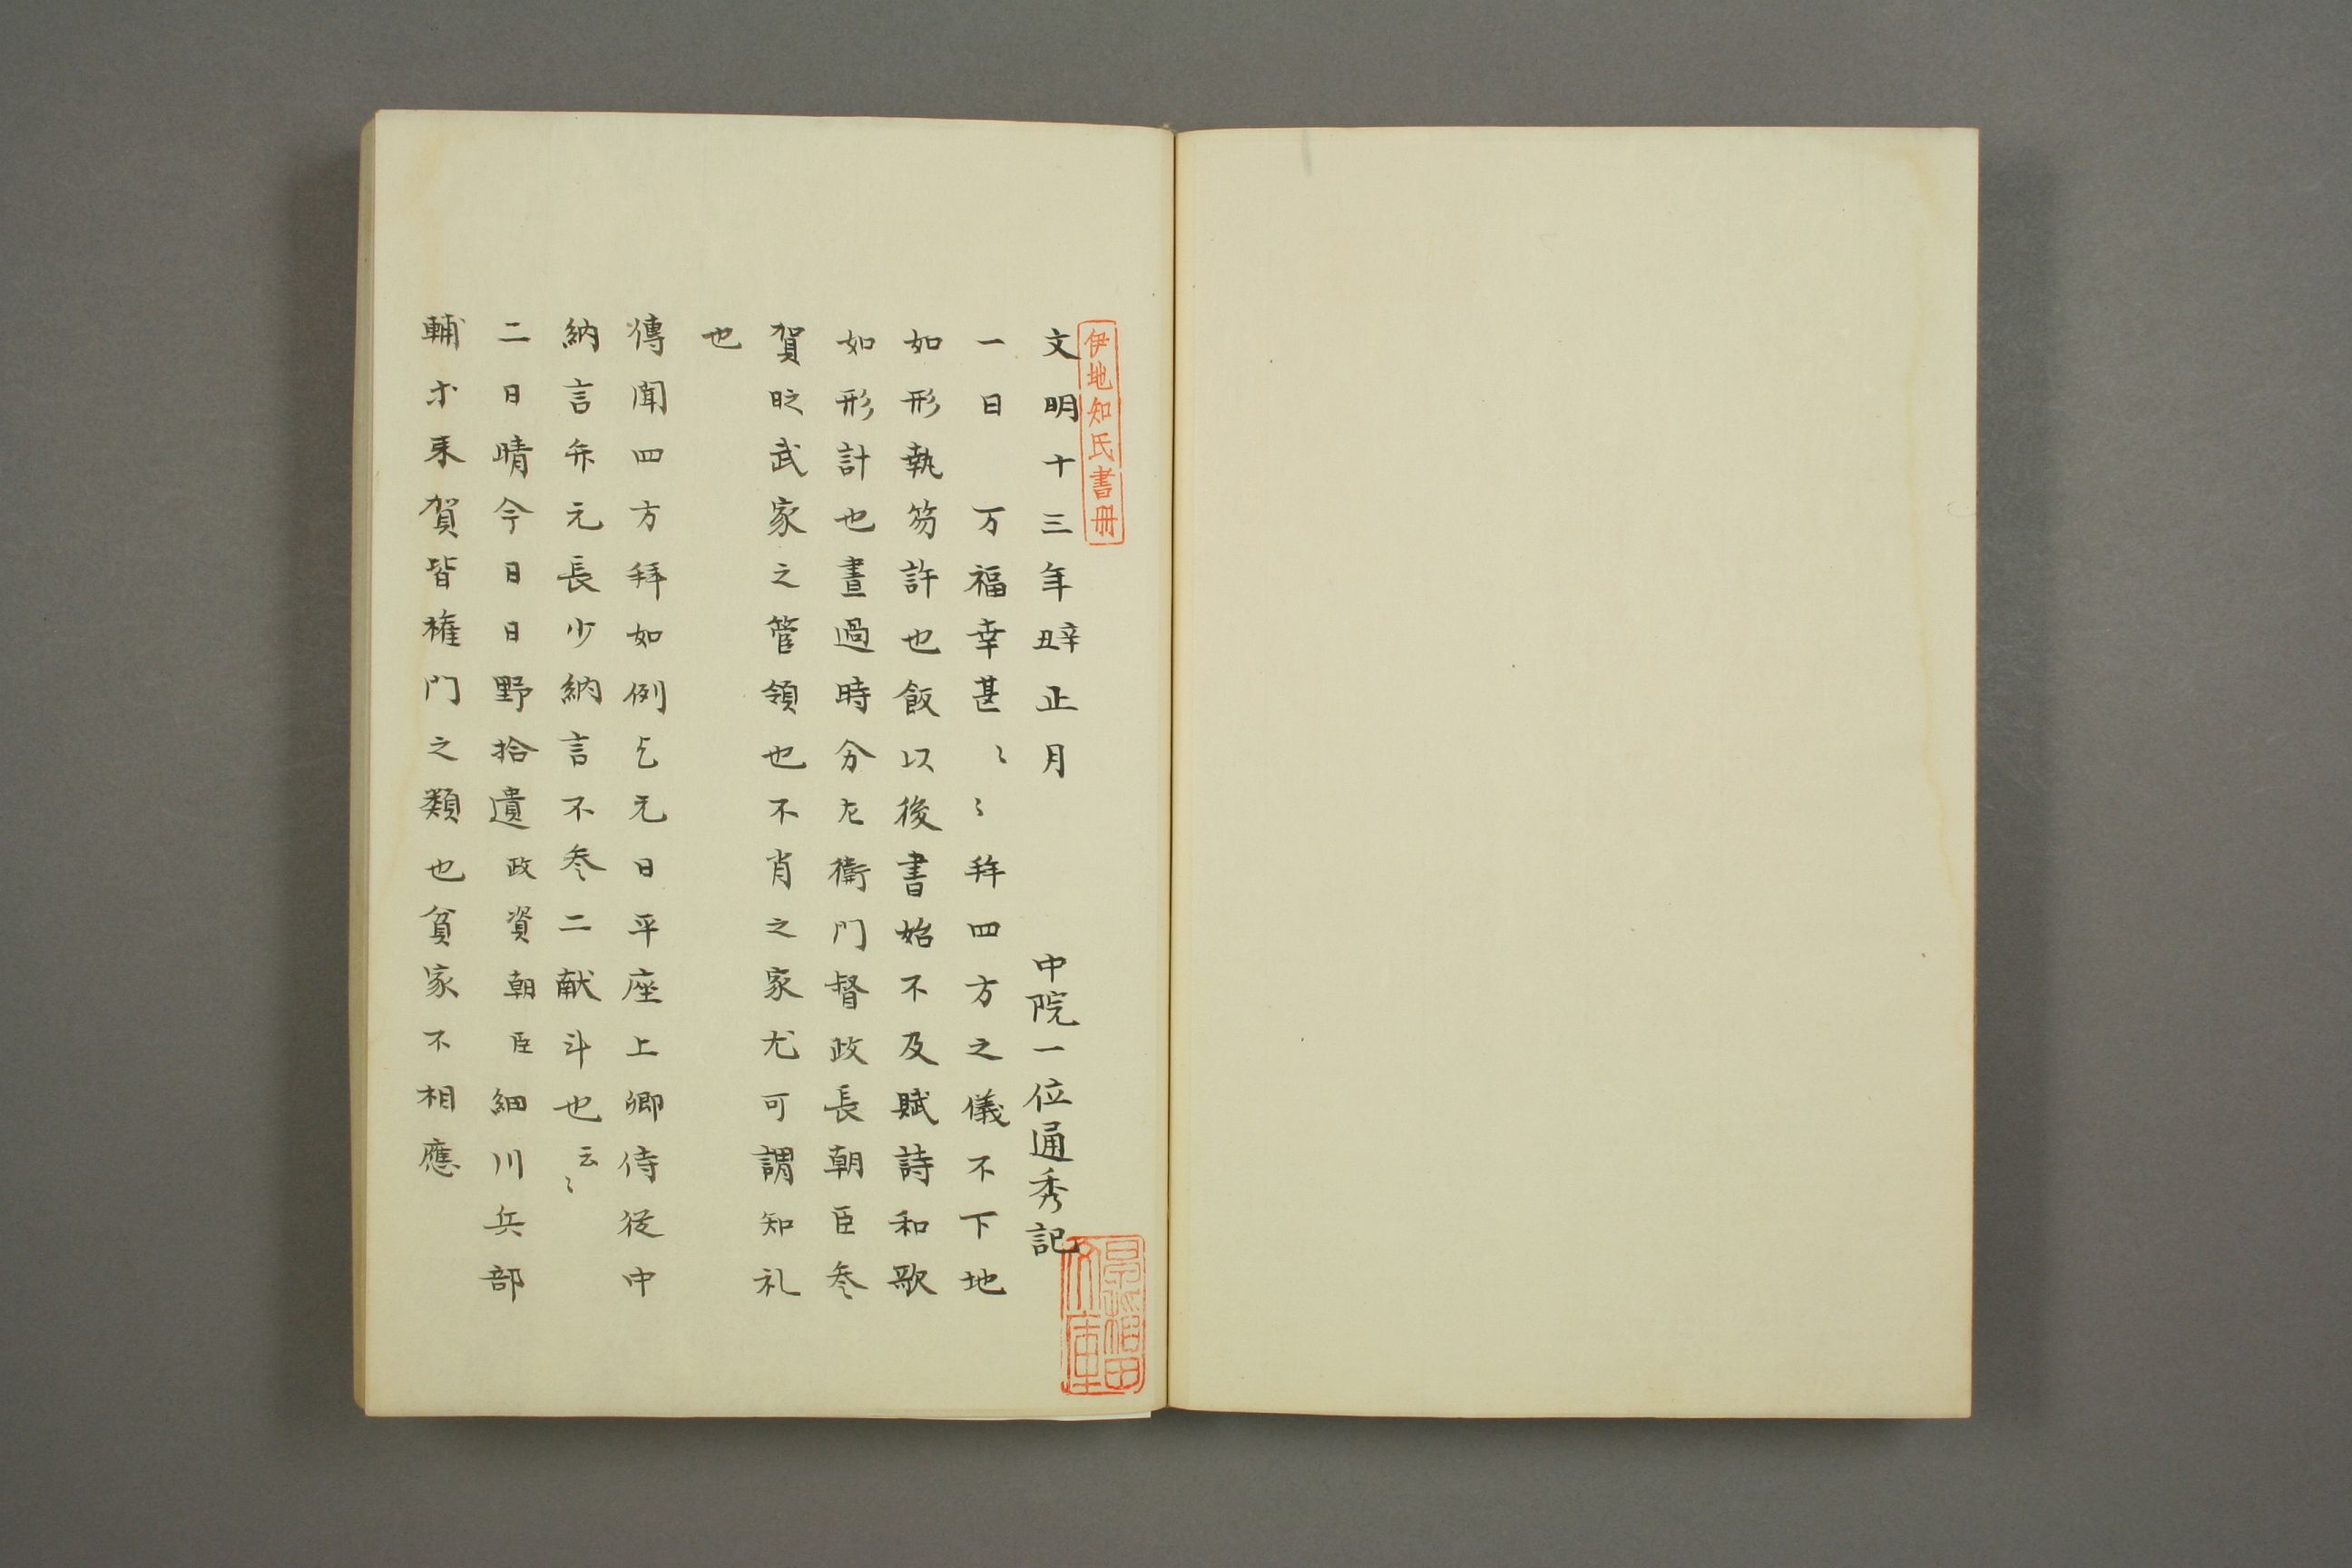 伊地知氏書冊
文明十三年辛丑正月
中院一位通秀記
一日　万福幸甚〻〻拜四方之儀不下地
如形執笏許也飯以後書始不及賦詩和歌
如形計也晝過時分左衛門督政長朝臣参
賀武家之管領也不肖之家尤可謂知礼
也
傳聞四方拜如例元日平座上卿侍従中
納言弁元長少納言不参二献斗也云〻
二日晴今日日野拾遺政資朝臣細川兵部
輔才来賀皆権門之類也貧家不相應